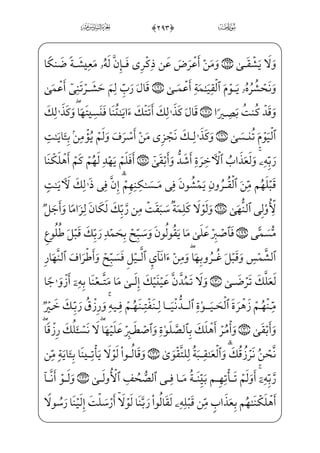 سُورَةُ طه ﴿٢٩٣﴾ الجُزْءُ السَّادِسَ عَشَرَ
وَلَا يَشْقَىٰ ﴿١٢٣﴾ وَمَنْ أَعْرَضَ عَن ذِكْرِي فَإِنَّ لَهُۥ مَعِيشَةً ضَنكًا
وَنَحْشُرُهُۥ يَوْمَ الْقِيَامَةِ أَعْمَىٰ ﴿١٢٤﴾ قَالَ رَبِّ لِمَ حَشَرْتَنِيٓ أَعْمَىٰ
وَقَدْ كُنتُ بَصِيرًا ﴿١٢٥﴾ قَالَ كَذَٰلِكَ أَتَتْكَ ءَايَاتُنَا فَنَسِيتَهَا ۖ وَكَذَٰلِكَ
الْيَوْمَ تُنسَىٰ ﴿١٢٦﴾ وَكَذَٰلِكَ نَجْزِي مَنْ أَسْرَفَ وَلَمْ يُؤْمِنۢ بِـَٔايَاتِ
رَبِّهِۦ ۚ وَلَعَذَابُ الْـَٔاخِرَةِ أَشَدُّ وَأَبْقَىٰٓ ﴿١٢٧﴾ أَفَلَمْ يَهْدِ لَهُمْ كَمْ أَهْلَكْنَا
قَبْلَهُم مِّنَ الْقُرُونِ يَمْشُونَ فِي مَسَاكِنِهِمْ ۗ إِنَّ فِي ذَٰلِكَ لَـَٔايَاتٍ
لِّأُو۟لِي النُّهَىٰ ﴿١٢٨﴾ وَلَوْلَا كَلِمَةٌ سَبَقَتْ مِن رَّبِّكَ لَكَانَ لِزَامًا وَأَجَلٌ
مُّسَمًّى ﴿١٢٩﴾ فَاصْبِرْ عَلَىٰ مَا يَقُولُونَ وَسَبِّحْ بِحَمْدِ رَبِّكَ قَبْلَ طُلُوعِ
الشَّمْسِ وَقَبْلَ غُرُوبِهَا ۖ وَمِنْ ءَانَآئِ الَّيْلِ فَسَبِّحْ وَأَطْرَافَ النَّهَارِ
لَعَلَّكَ تَرْضَىٰ ﴿١٣٠﴾ وَلَا تَمُدَّنَّ عَيْنَيْكَ إِلَىٰ مَا مَتَّعْنَا بِهِۦٓ أَزْوَاجًا
مِّنْهُمْ زَهْرَةَ الْحَيَوٰةِ الدُّنْيَا لِنَفْتِنَهُمْ فِيهِ ۚ وَرِزْقُ رَبِّكَ خَيْرٌ
وَأَبْقَىٰ ﴿١٣١﴾ وَأْمُرْ أَهْلَكَ بِالصَّلَوٰةِ وَاصْطَبِرْ عَلَيْهَا ۖ لَا نَسْـَٔلُكَ رِزْقًا ۖ
نَّحْنُ نَرْزُقُكَ ۗ وَالْعَاقِبَةُ لِلتَّقْوَىٰ ﴿١٣٢﴾ وَقَالُوا۟ لَوْلَا يَأْتِينَا بِـَٔايَةٍ مِّن
رَّبِّهِۦٓ ۚ أَوَلَمْ تَأْتِهِم بَيِّنَةُ مَا فِي الصُّحُفِ الْأُولَىٰ ﴿١٣٣﴾ وَلَوْ أَنَّآ
أَهْلَكْنَاهُم بِعَذَابٍ مِّن قَبْلِهِۦ لَقَالُوا۟ رَبَّنَا لَوْلَآ أَرْسَلْتَ إِلَيْنَا رَسُولًا